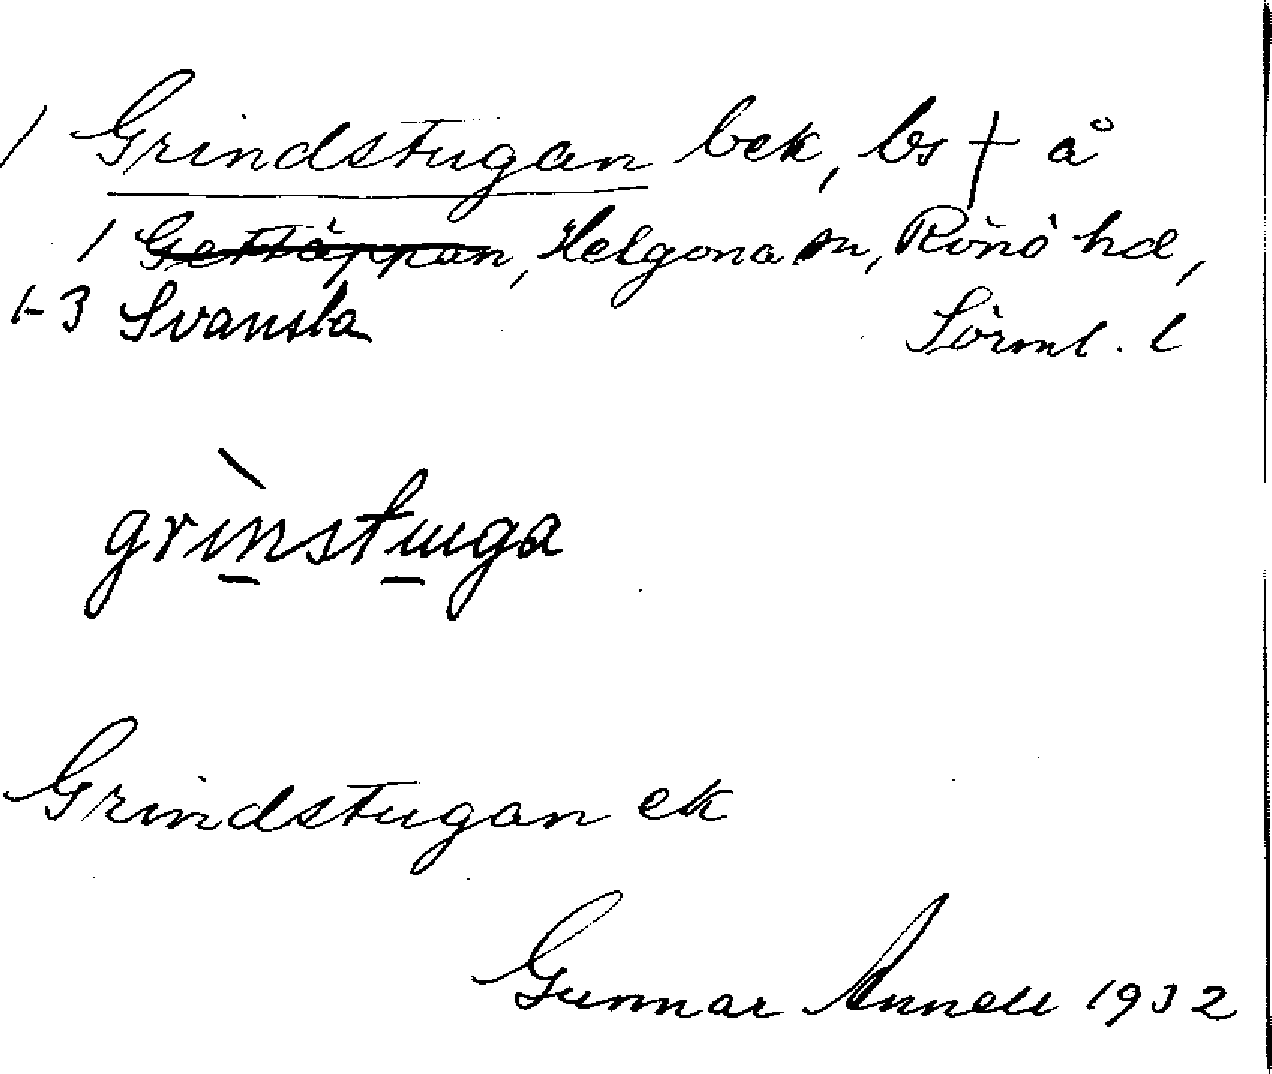 1 Grindstugan bek, bs † å
1 Gettäppan, Helgona sn, Rönö hd,
1-3 Svansta Sörml. l
grìnstuga
Grindstugan ek
Gunnar Annell 1932